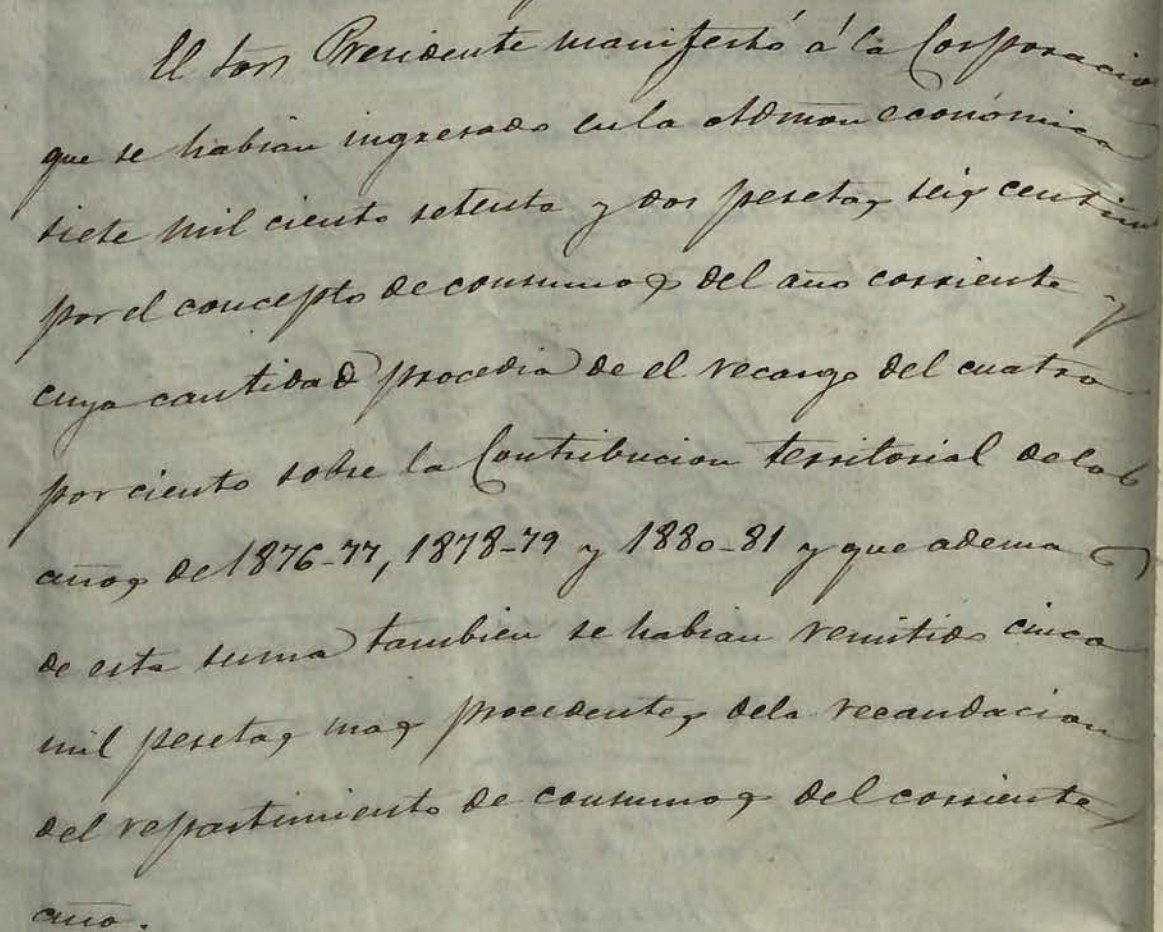 El Sor Presidente manifestó á la Corporacion
que se habian ingresado en la Admon económica
siete mil ciento setenta y dos pesetas seis centim
por el concepto de consumos del año corriente y
cuya cantidad procedia de el recargo del cuatro
por ciento sobre la Contribucion territorial de los
años de 1876-77, 1878-79 y 1880-81 y que ademas
de esta suma tambien se habian remitido cinco
mil pesetas mas procedentes de la recaudacion
del repartimiento de consumos del corriente
año.